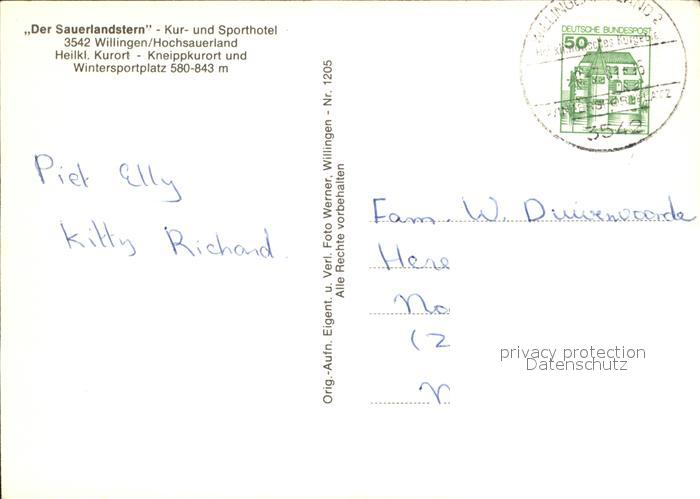 „Der Sauerlandstern" - Kur- und Sporthotel
3542 Willingen/Hochsauerland
Heilkl. Kurort - Kneippkurort und
Wintersportplatz 580-843 m
Piet Elly
Kitty Richard
Orig.-Aufn. Eigent. u. Verl. Foto Werner, Willingen - Nr. 1205
Alle Rechte vorbehalten
DEUTSCHE BUNDESPOST
50
3542
Fam. W. Duivenvoorde
Here
No
(2
V
privacy protection
Datenschutz